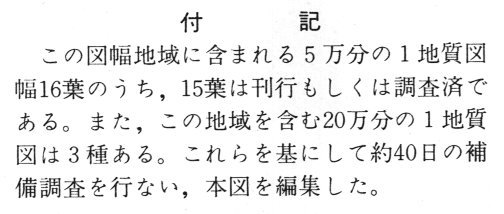 付記
この図幅地域に含まれる5万分の1地質図
幅16葉のうち，15葉は刊行もしくは調査済で
ある。また，この地域を含む20万分の1地質
図は3種ある。これらを基にして約40日の補
備調査を行ない，本図を編集した。